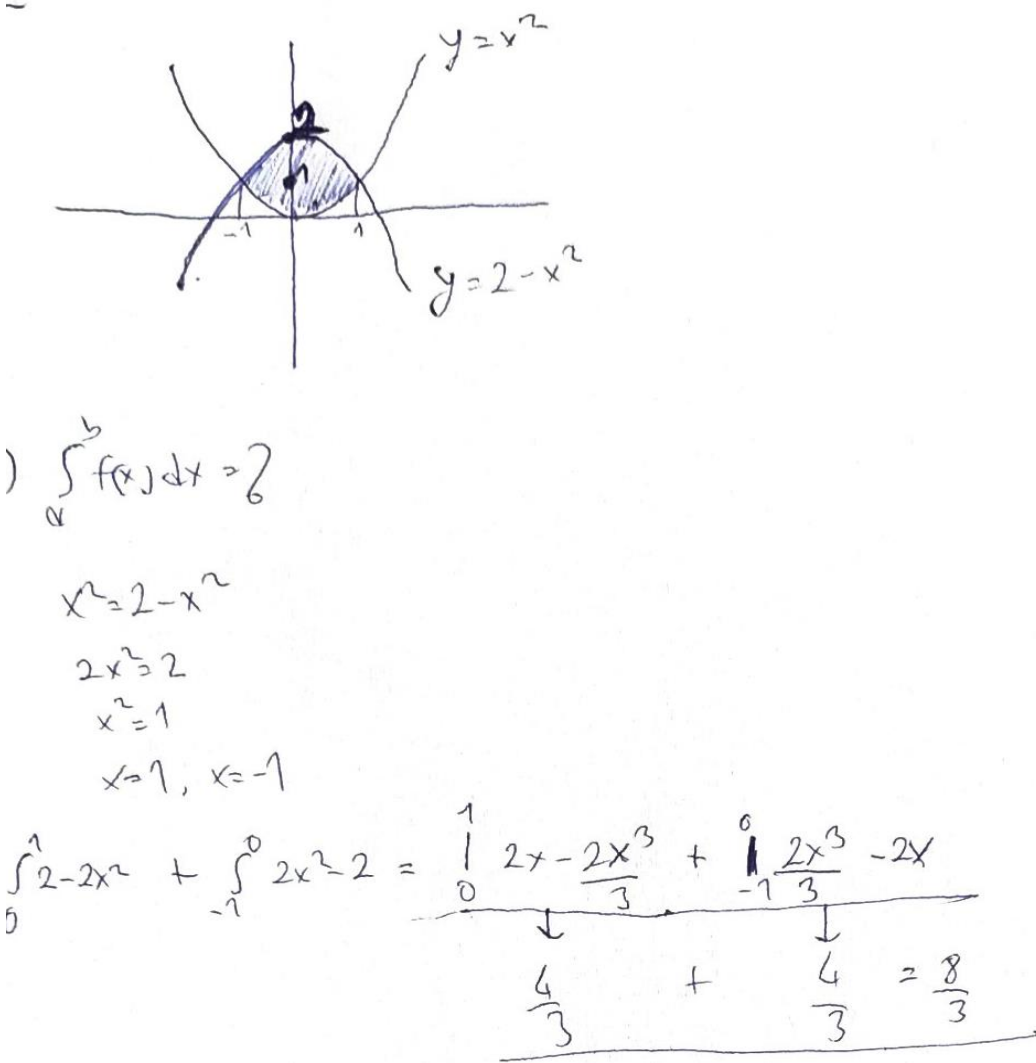 y=x²
2
1
-1
1
y=2-x²
) ∫_a^b f(x)dx=?
x²=2-x²
2x²=2
x²=1
x=1, x=-1
∫_0^1 2-2x² + ∫_{-1}^0 2x²-2 = |_0^1 2x-2x³/3 + |_{-1}^0 2x³/3 -2x
4/3 + 4/3 = 8/3